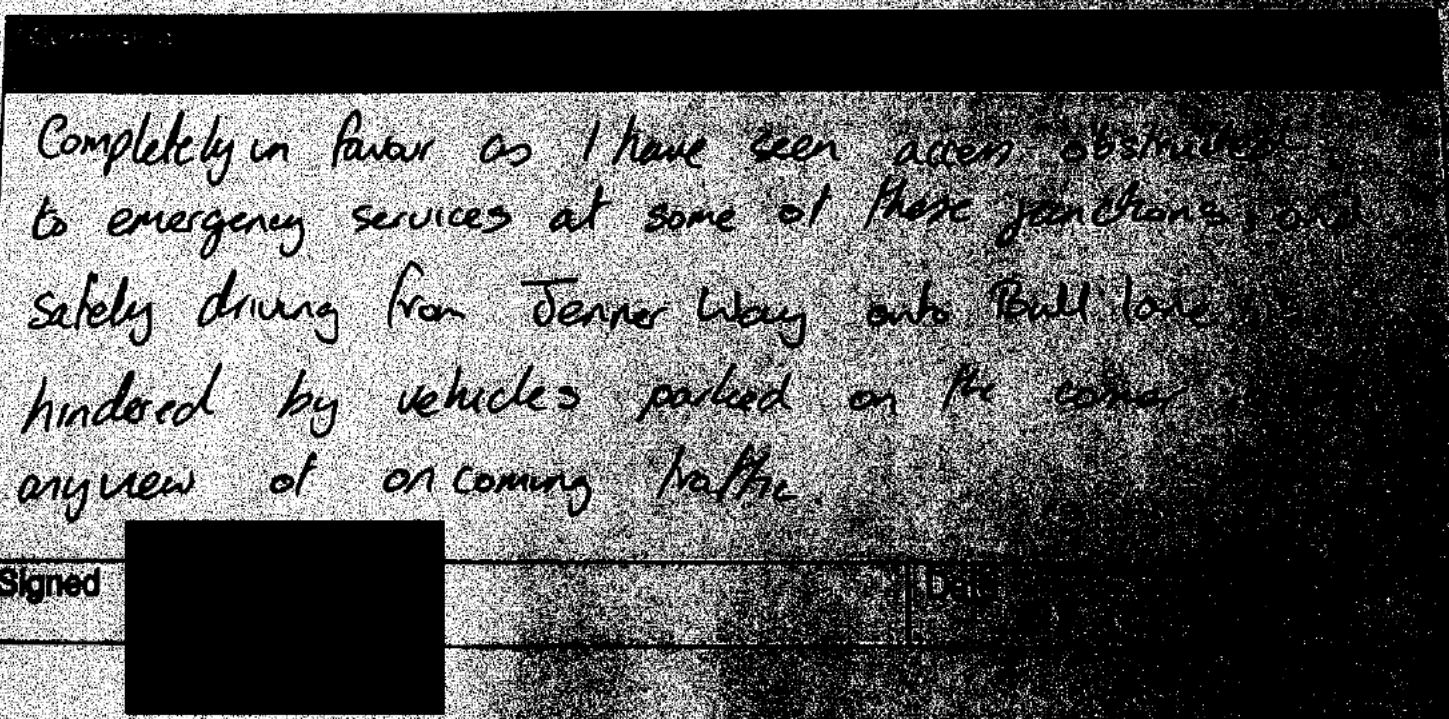 Comments
Completely in favour as I have seen access obstructed
to emergency services at some of these junctions, and
safely driving from Jenner Way onto Bull lane
hindered by vehicles parked on the corner
any view of on coming traffic.
Signed
Date